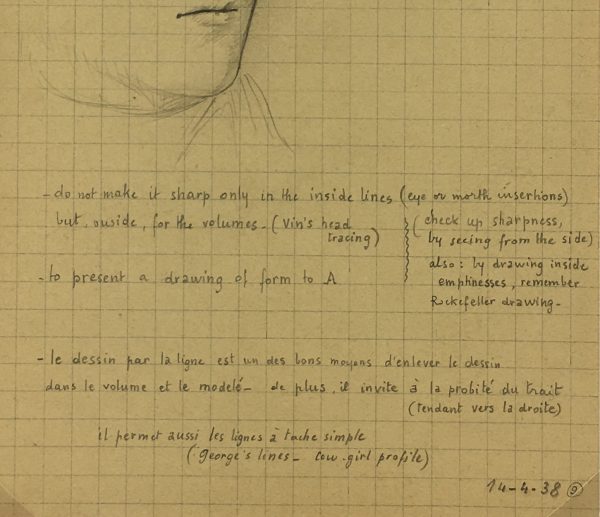 - do not make it sharp only in the inside lines (eye or morth insertions)
but. ouside, for the volumes - (Vin's head
tracing)
(check up sharpness,
by seeing from the side)
also: by drawing inside
emptinesses, remember
Rockefeller drawing -
- to present a drawing of form to A
- le dessin par la ligne est un des bons moyens d'enlever le dessin
dans le volume et le modelé - de plus, il invite à la probité du trait
(tendant vers la droite)
il permet aussi les lignes à tache simple
(George's lines - cow-girl profile)
14-4-38 9